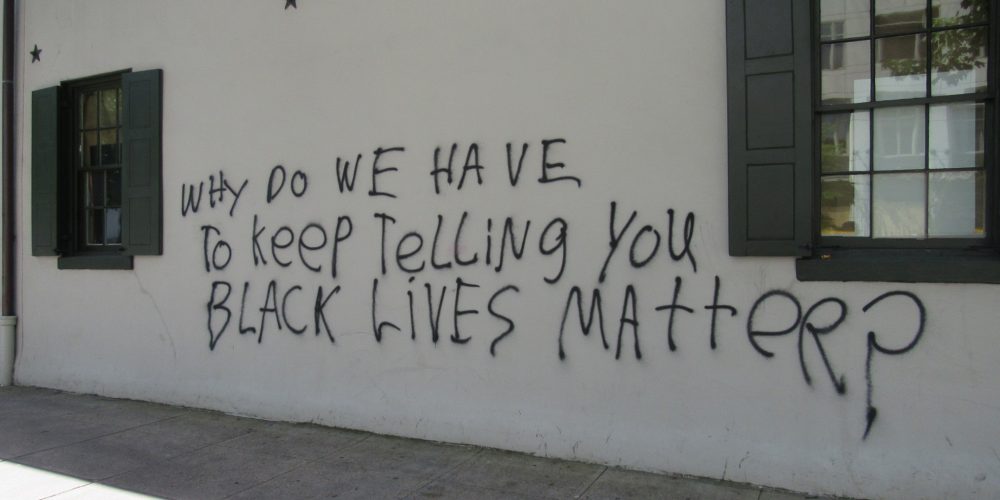 WHY DO WE HAVE
To keep Telling You
BLACK LIVES MAtteR?